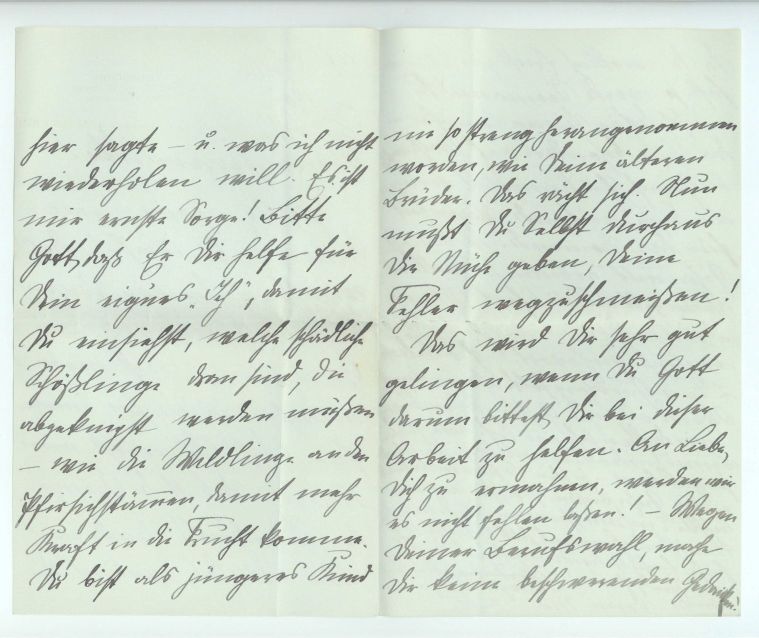 hier sagte – u. was ich nicht
wiederholen will. Es ist
mir ernste Sorge! Bitte
Gott, daß Er Dir helfe für
Dein eignes „Ich“, damit
Du einsiehst, welche schädliche
Schößlinge dran sind, die
abgeknipst werden müssen
– wie die Wildlinge an den
Pfirsichstämmen, damit mehr
Kraft in die Frucht komme.
Du bist als jüngeres Kind
nie so streng herangenommen
worden, wie Deine älteren
Brüder. Das rächt sich. Nun
mußt Du Selbst durchaus
Dir Mühe geben, Deine
Fehler wegzuschmeißen!
Das wird Dir sehr gut
gelingen, wenn Du Gott
darum bittest, Dir bei dieser
Arbeit zu helfen. An Liebe,
Dich zu ermahnen, werden wir
es nicht fehlen lassen! – Wegen
Deiner Berufswahl, mache
Dir keine beschwerenden Gedanken!